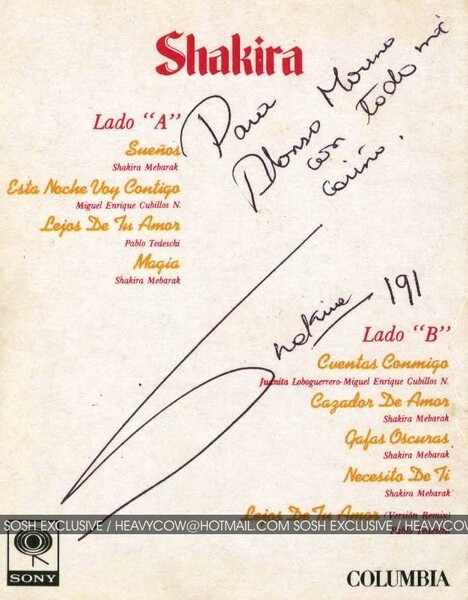 Shakira
Para
Alonso Moreno
con todo mi
cariño.
Lado "A"
Sueños
Shakira Mebarak
Esta Noche Voy Contigo
Miguel Enrique Cubillos N.
Lejos De Tu Amor
Pablo Tedeschi
Magia
Shakira Mebarak
Shakira /91
Lado "B"
Cuentas Conmigo
Juanita Loboguerrero-Miguel Enrique Cubillos N.
Cazador De Amor
Shakira Mebarak
Gafas Oscuras
Shakira Mebarak
Necesito De Ti
Shakira Mebarak
Lejos De Tu Amor (Versión Remix)
SOSH EXCLUSIVE / HEAVYCOW@HOTMAIL.COM SOSH EXCLUSIVE / HEAVYCOW
SONY
COLUMBIA